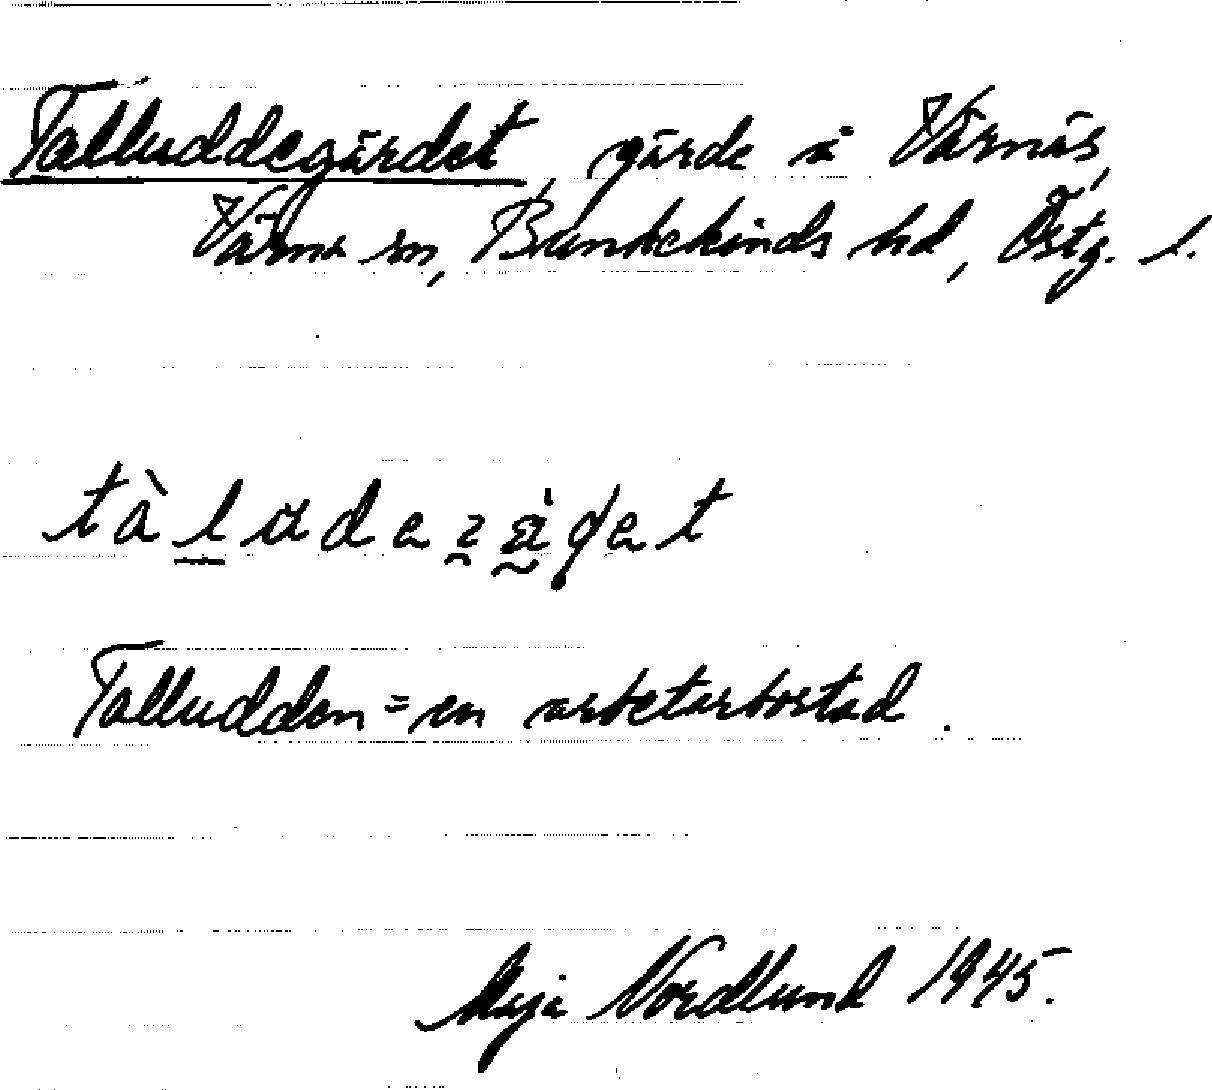 Talluddegärdet, gärde å Värnäs,
Värna sn, Bankekinds hd, Östg. l.
tàludezä̀ɖet
Talludden = en arbetarbostad.
Maja Nordlund 1945.